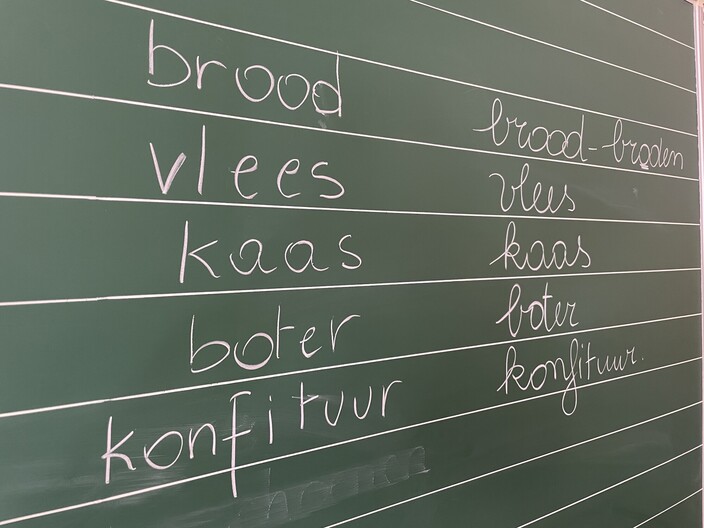 brood
vlees
kaas
boter
konfituur
brood - broden
vlees
kaas
boter
konfituur.